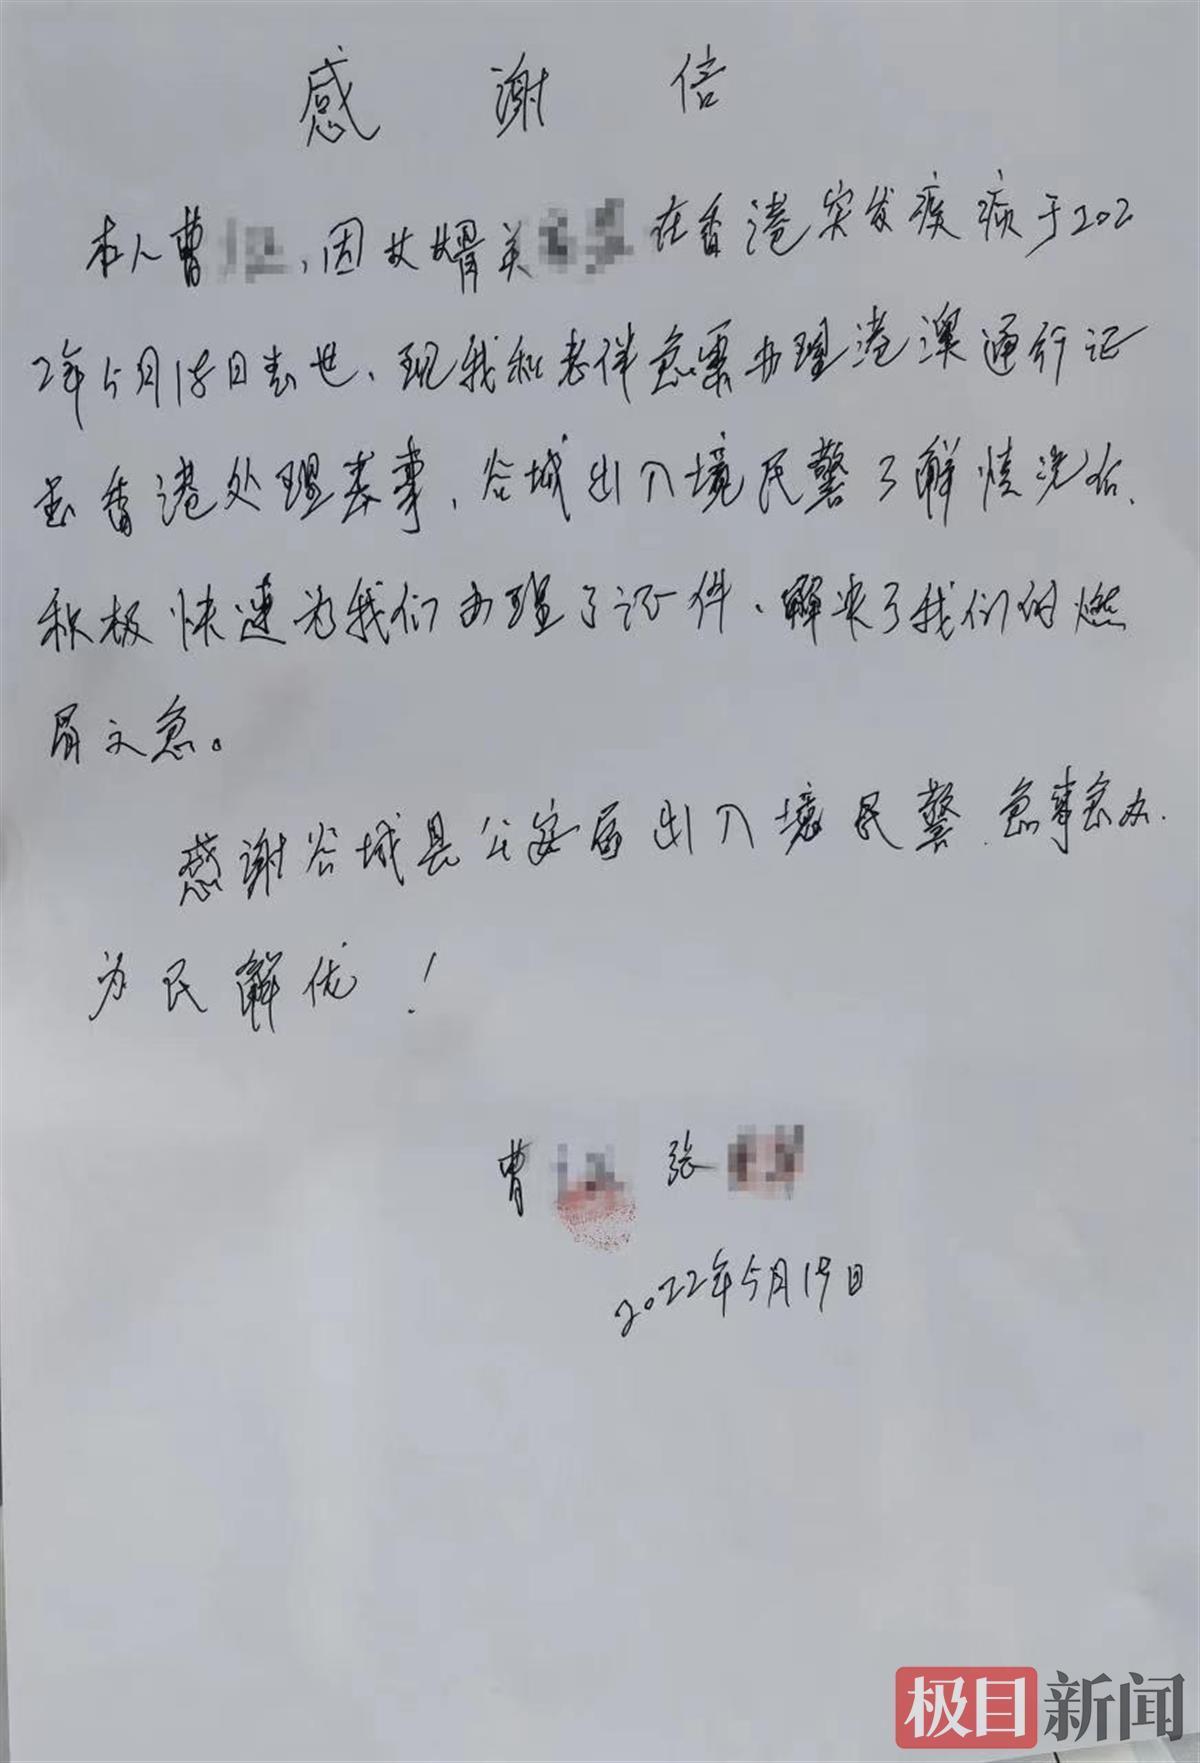 感谢信
本人曹，因女婿关在香港突发疾病于202
2年5月18日去世、现我和老伴急需办理港澳通行证
去香港处理丧事，谷城出入境民警了解情况后、
积极快速为我们办理了证件、解决了我们的燃
眉之急。
感谢谷城县公安局出入境民警、急事急办、
为民解优！
曹 张
2022年5月19日
极目新闻